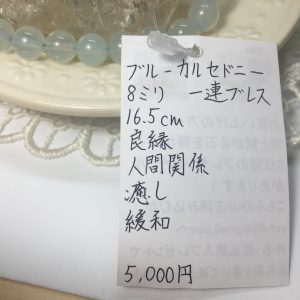 ブルーカルセドニー
8ミリ 一連ブレス
16.5cm
良縁
人間関係
癒し
緩和
5,000円